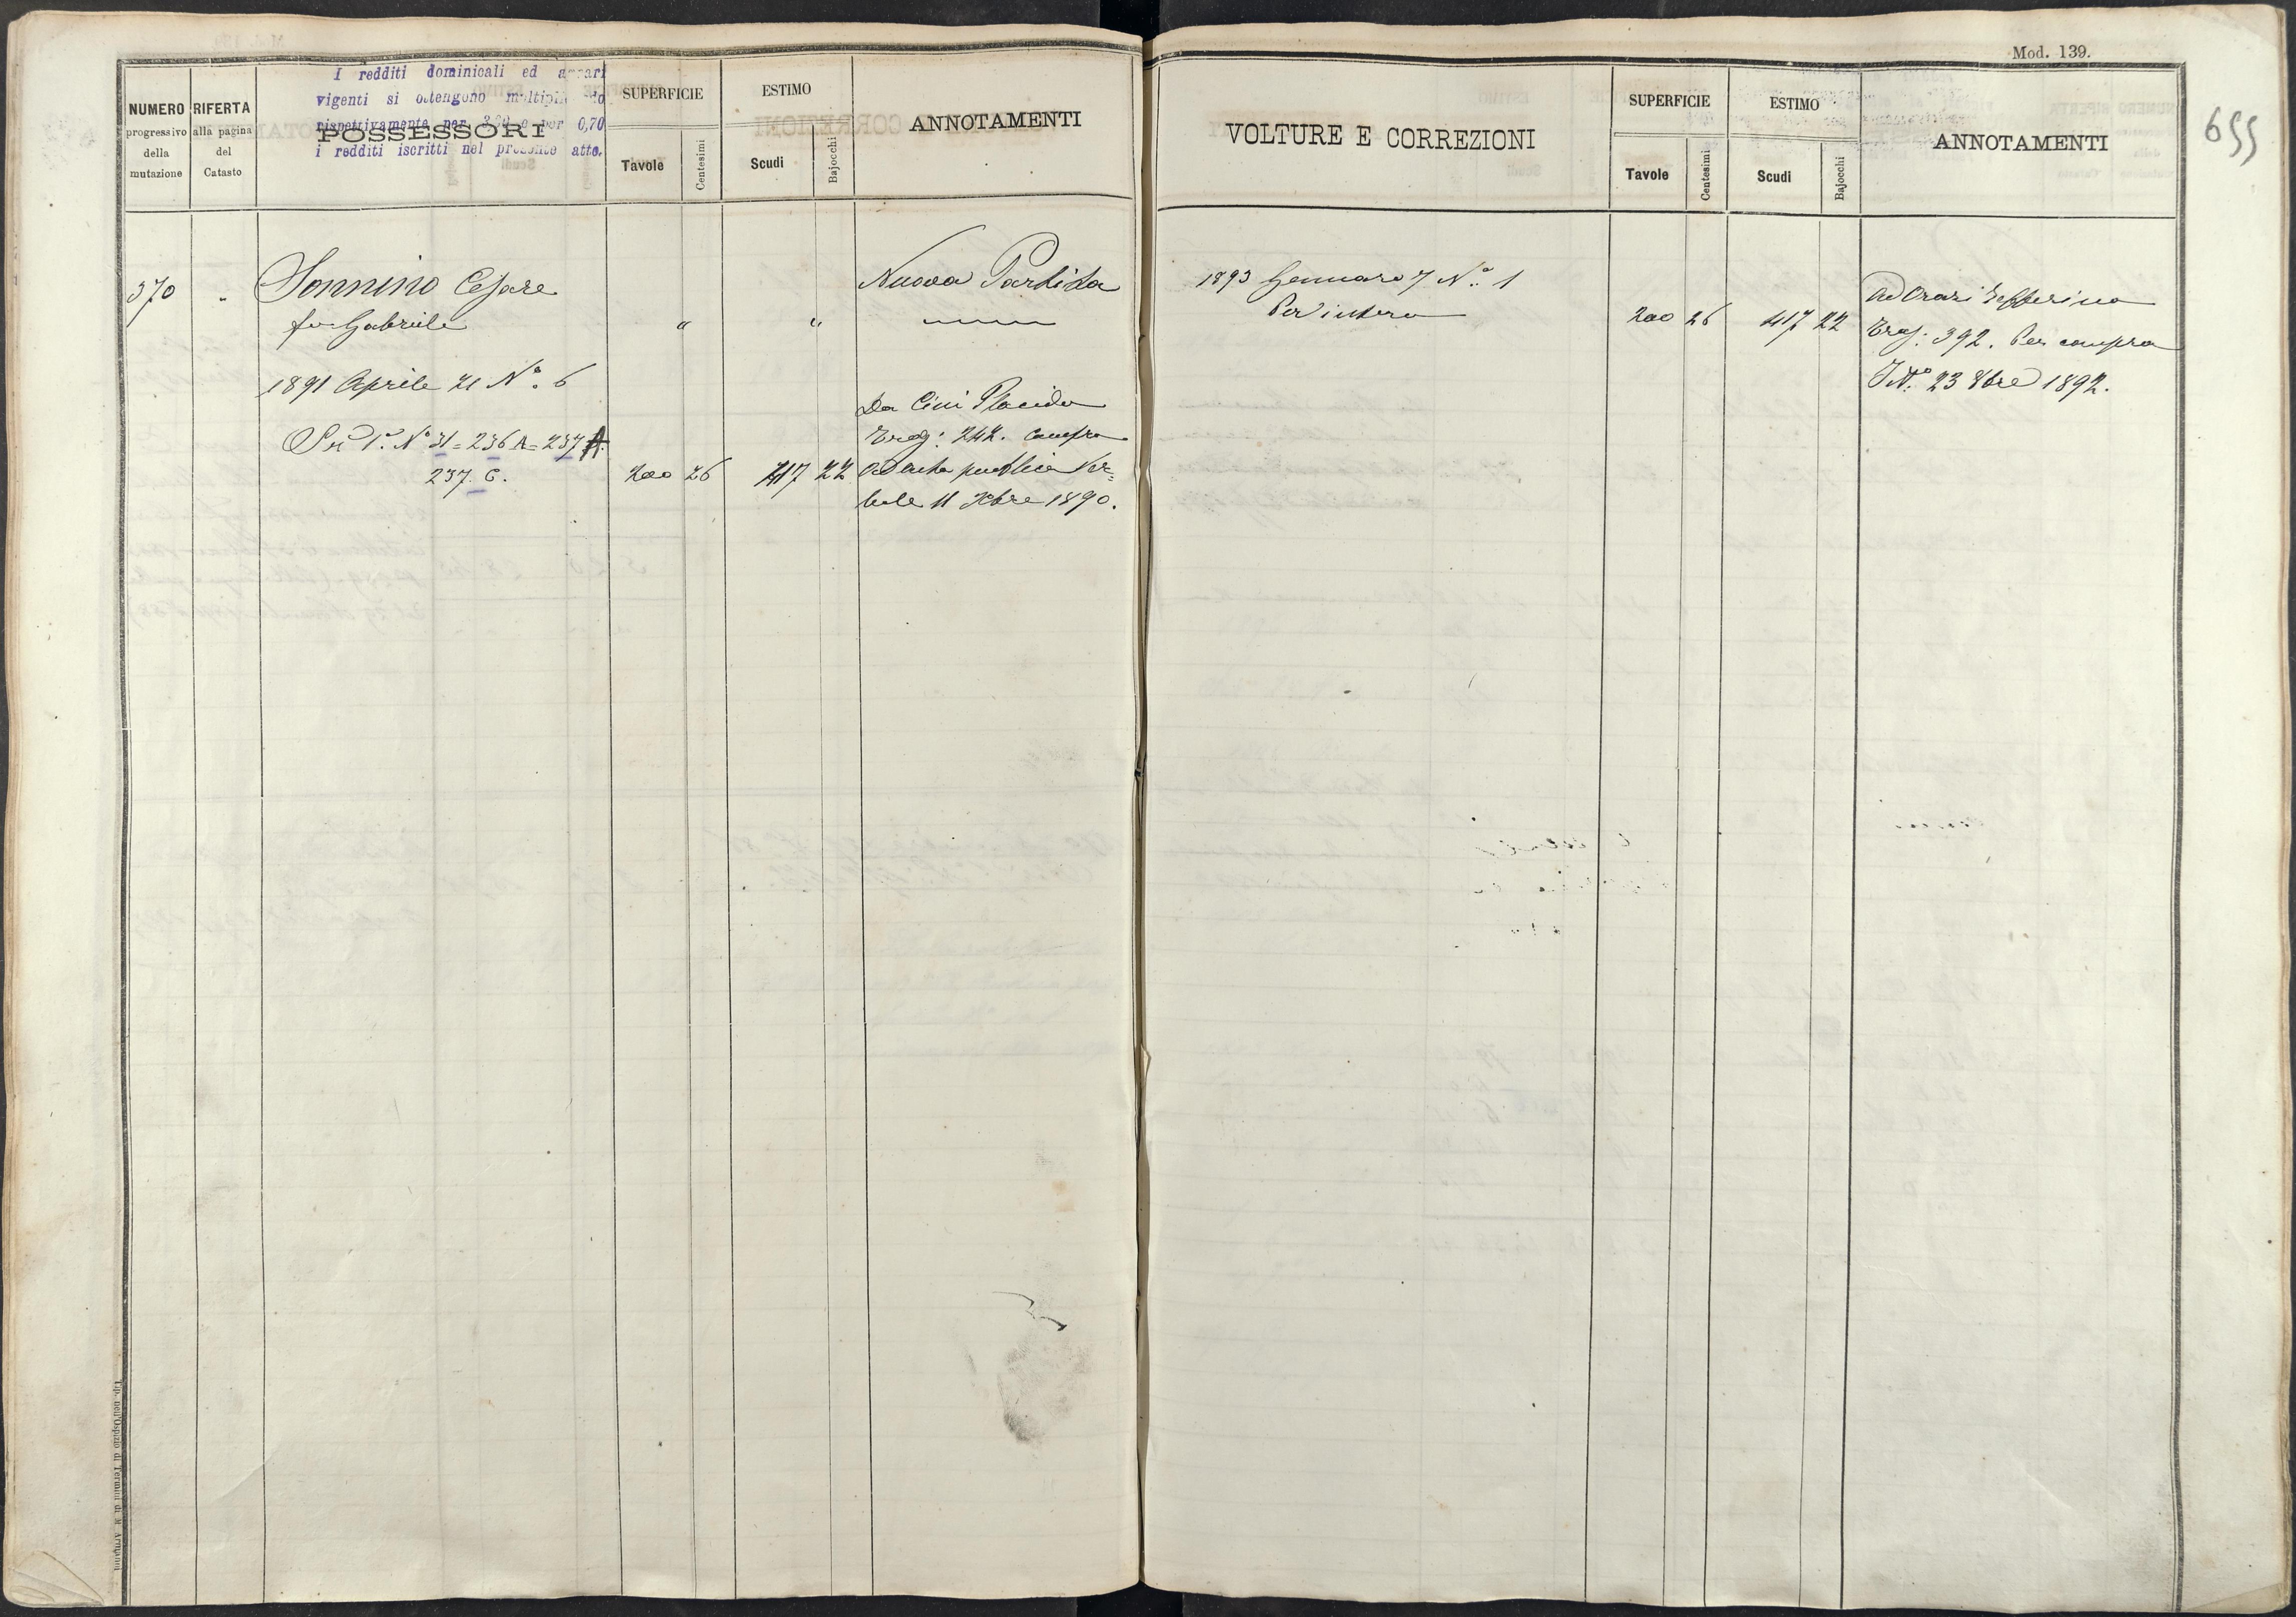 Mod. 139.
655
I redditi dominicali ed agrari
vigenti si ottengono
rispettivamente per e per 0,70
i redditi iscritti nel presente atto.
NUMERO
progressivo
della
mutazione
RIFERTA
alla pagina
del
Catasto
POSSESSORI
SUPERFICIE
Tavole
Centesimi
ESTIMO
Scudi
Bajocchi
ANNOTAMENTI
370 "
Sonnino Cesare
fu Gabriele
" "
Nuova Partita
1891 Aprile 21 N.º 6
Sez. 1.ª Nº 31 = 236 A = 237 A.
237. C.
200 26 417 22
Da Cini Placido
Treg: 242. compra
ad atto pubblico Ver=
bale 11 Xbre 1890.
VOLTURE E CORREZIONI
SUPERFICIE
Tavole
Centesimi
ESTIMO
Scudi
Bajocchi
ANNOTAMENTI
1893 Gennaro 7 N.º 1
Per intero
200 26 417 22
Ad Orazi Zefferino
Treg: 392. Per compra
23 8bre 1892.
Tip. dell'Ospizio di Termini di